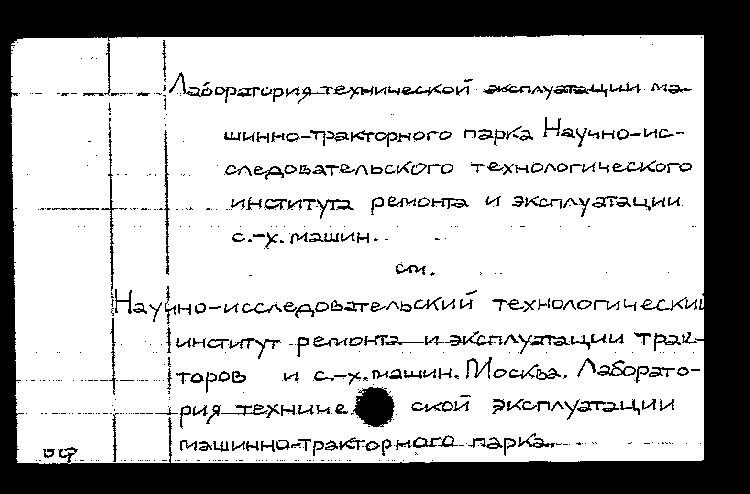 Лаборатория технической эксплуатации ма-
шинно-тракторного парка Научно-ис-
следовательского технологического
института ремонта и эксплуатации
с.-х. машин.
см.
Научно-исследовательский технологический
институт ремонта и эксплуатации трак-
торов и с.-х. машин. Москва. Лаборато-
рия техниче ской эксплуатации
машинно-тракторного парка.